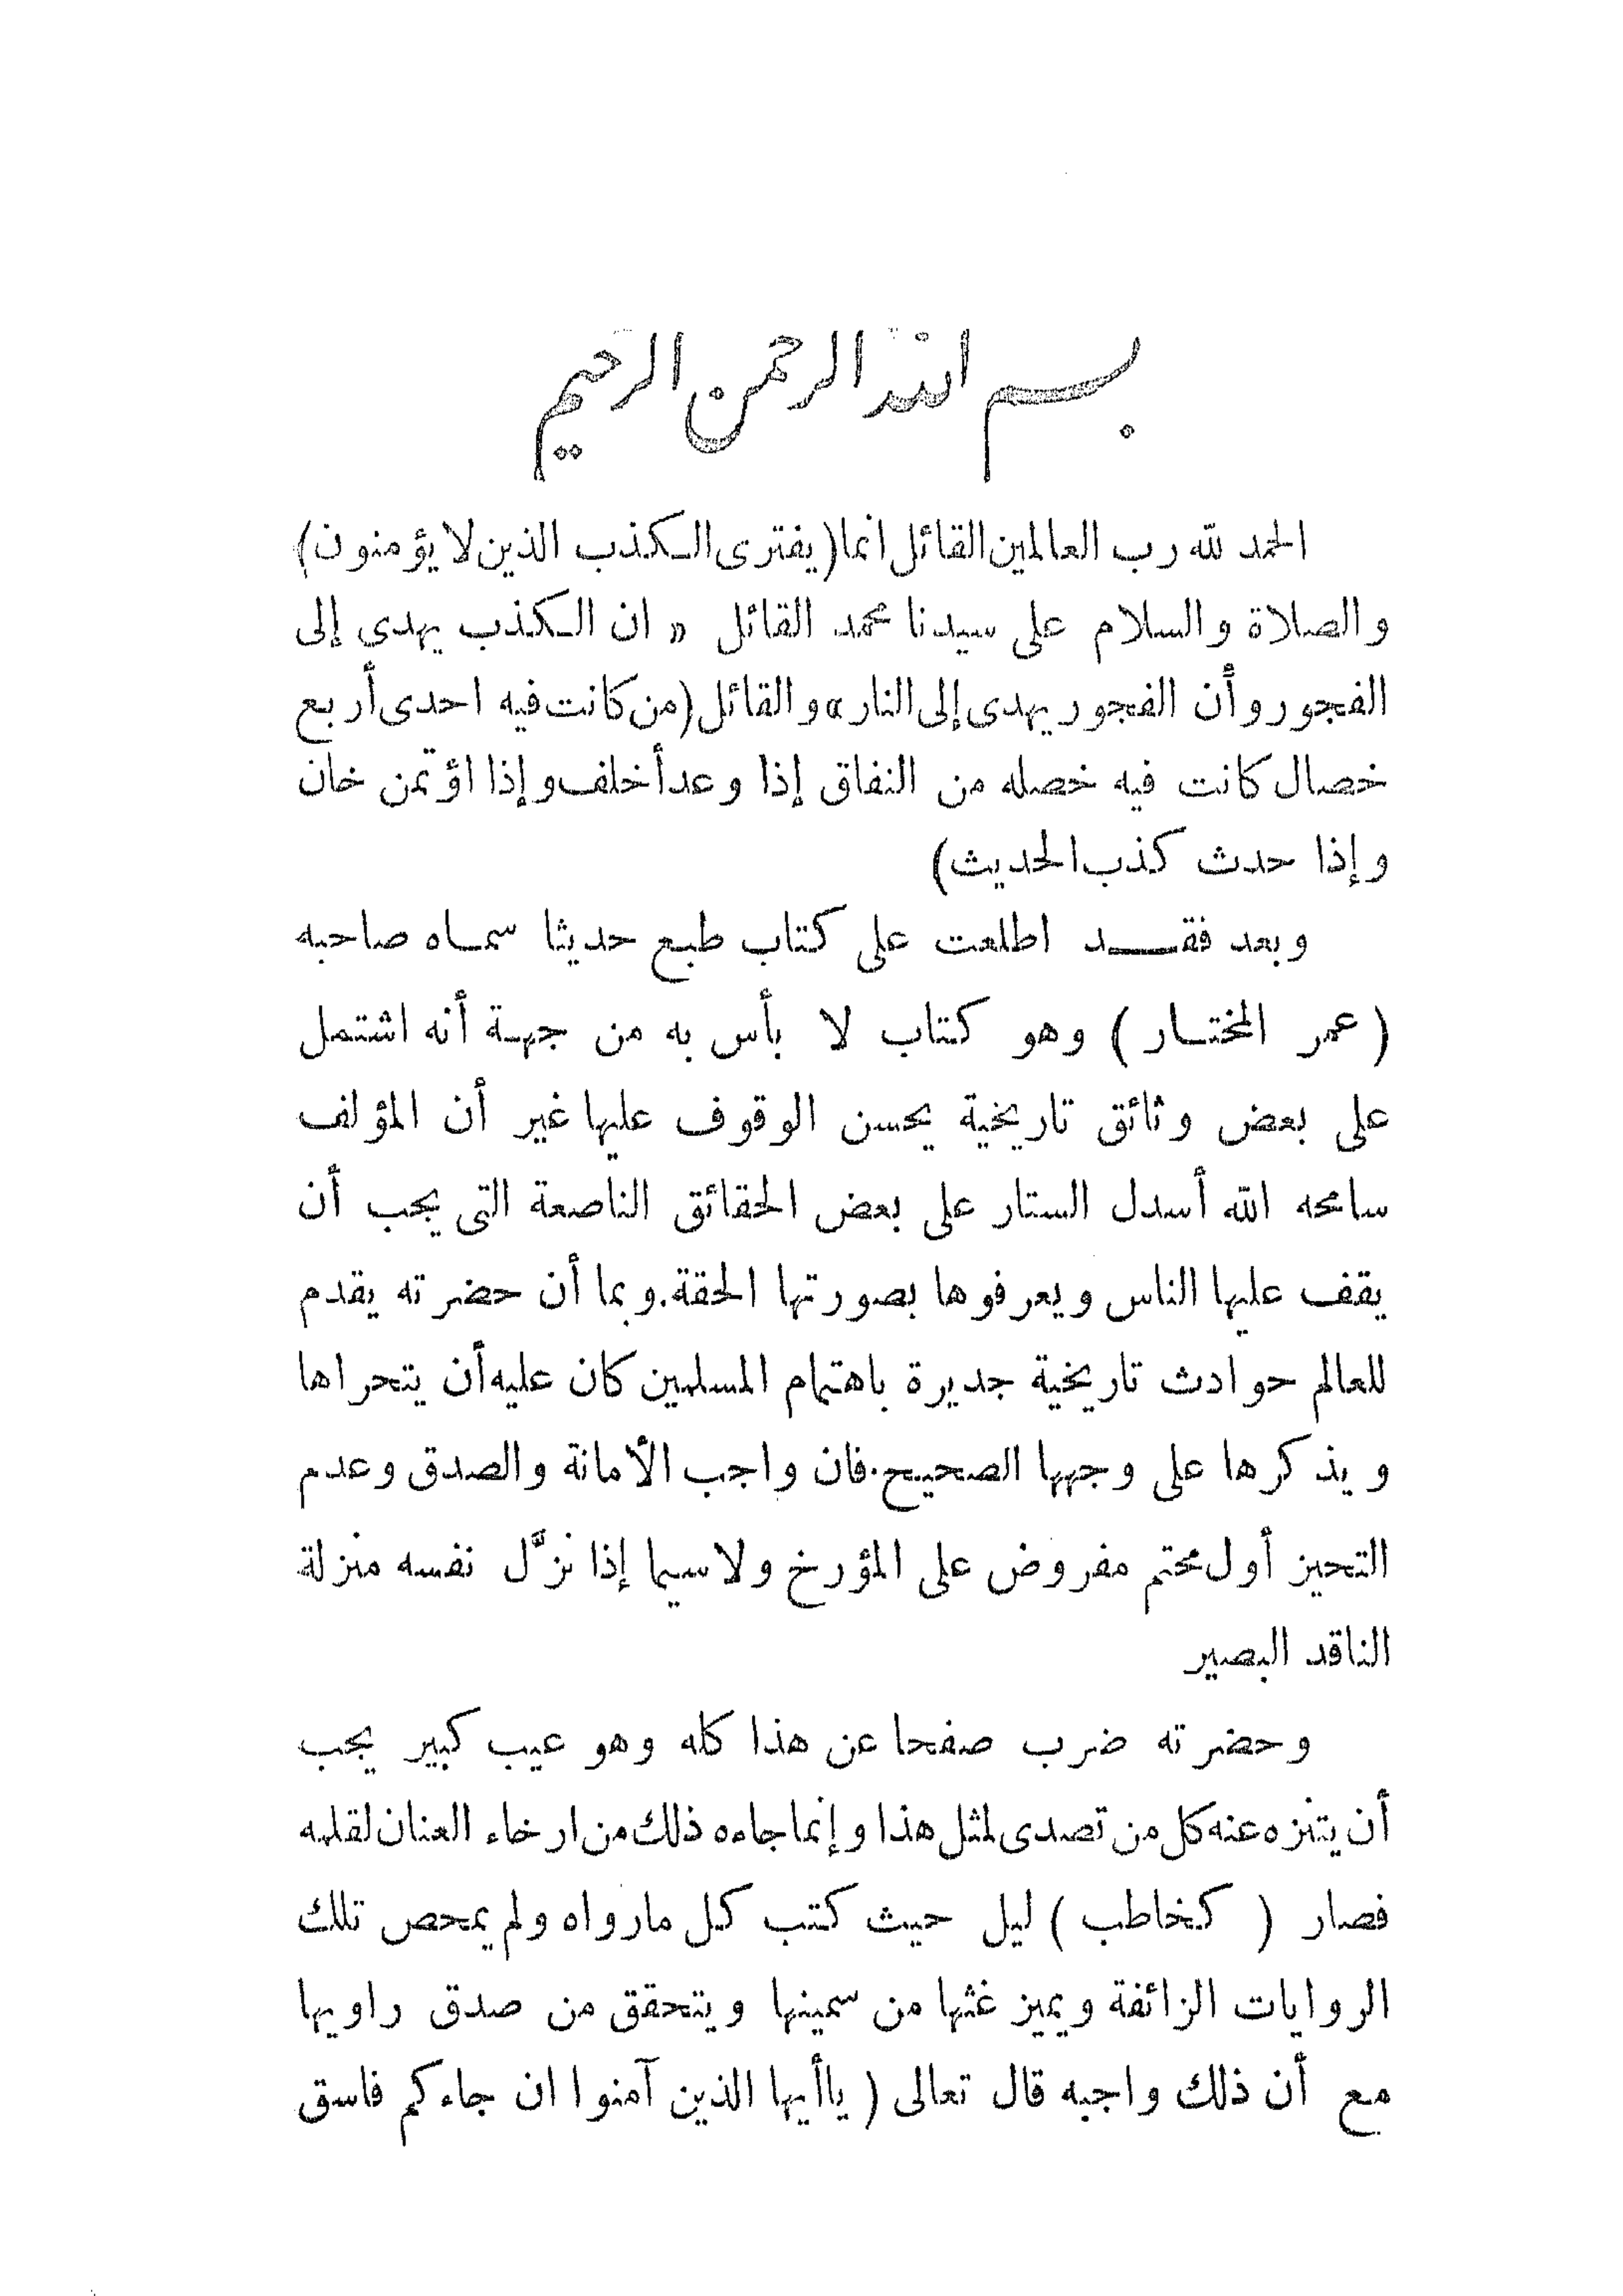 بسم الله الرحمن الرحيم
الحمد لله رب العالمين القائل انما (يفترى الكذب الذين لا يؤمنون)
والصلاة والسلام على سيدنا محمد القائل « ان الكذب يهدى إلى
الفجور وأن الفجور يهدى إلى النار » والقائل (من كانت فيه احدى أربع
خصال كانت فيه خصله من النفاق إذا وعد أخلف وإذا اؤتمن خان
وإذا حدث كذب الحديث)
وبعد فقد اطلعت على كتاب طبع حديثا سماه صاحبه
( عمر المختار ) وهو كتاب لا بأس به من جهة أنه اشتمل
على بعض وثائق تاريخية يحسن الوقوف عليها غير أن المؤلف
سامحه الله أسدل الستار على بعض الحقائق الناصعة التى يجب أن
يقف عليها الناس ويعرفوها بصورتها الحقة. وبما أن حضرته يقدم
للعالم حوادث تاريخية جديرة باهتمام المسلمين كان عليه أن يتحراها
ويذكرها على وجهها الصحيح. فان واجب الأمانة والصدق وعدم
التحيز أول محتم مفروض على المؤرخ ولاسيما إذا نزَّل نفسه منزلة
الناقد البصير
وحضرته ضرب صفحا عن هذا كله وهو عيب كبير يجب
أن يتنزه عنه كل من تصدى لمثل هذا وإنما جاءه ذلك من ارخاء العنان لقلمه
فصار ( كخاطب ) ليل حيث كتب كل مارواه ولم يمحص تلك
الروايات الزائفة ويميز غثها من سمينها ويتحقق من صدق راويها
مع أن ذلك واجبه قال تعالى ( ياأيها الذين آمنوا ان جاءكم فاسق